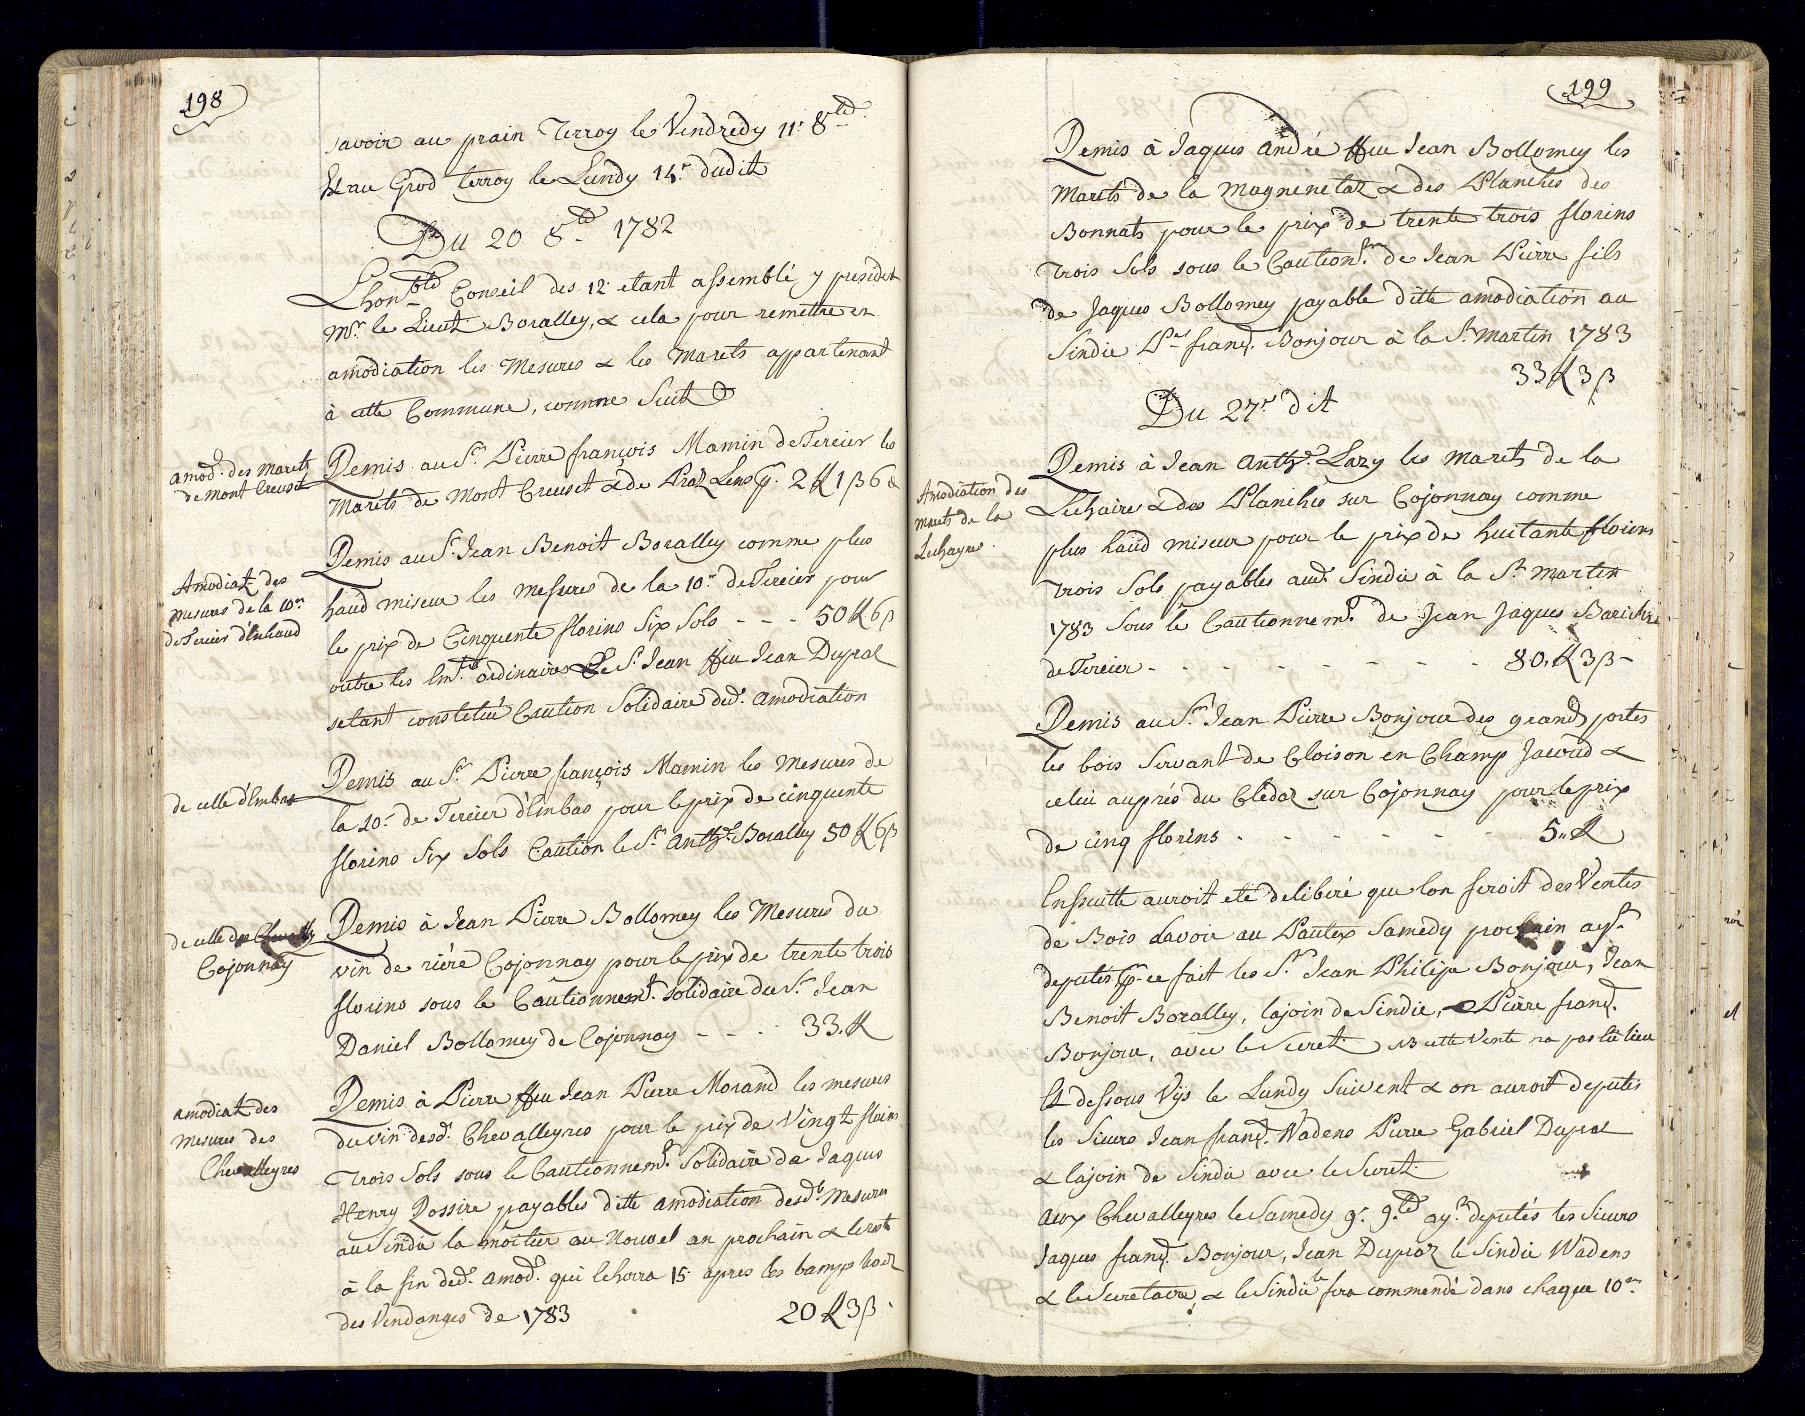 198
savoir au prain Terroy le Vendredy 11.e 8bre
Et au Grod terroy le Lundy 14.e dudit
Du 20 8bre 1782
L'honble Conseil des 12 etant assemblé y president
Mr. le Lieut. Boralley, & cela pour remettre en
amodiation les Mesures & les Marets appartenant
à cette Commune, comme Suit
amod. des marets
de mont Creuset
Remis au Sr. Pierre françois Mamin de Tercier les
Marets de Mont Creuset & de Praz Lens p. 2 fl 1 ß 6 d
Amodiat. des
mesures de la 10.e
de Tercier d'Enhaud
Remis au Sr. Jean Benoit Boralley comme plus
haud miseur les messures de la 10.e de Tercier pour
le prix de Cinquante florins Six Sols - - - 50 fl 6 ß
outre les Emts. ordinaires Le Sr. Jean ffeu Jean Dupraz
setant constetué Caution Solidaire ded. Amodiation
de celle d'Embas
Remis au Sr. Pierre françois Mamin les Mesures de
la 10.e de Tercier d'Embas pour le prix de cinquante
florins Six Sols Caution le Sr. Anthe. Boralley 50 fl 6 ß
de celle de
Cojonnay
Remis à Jean Pierre Bollomey les Mesures du
vin de riére Cojonnay pour le prix de trente trois
florins sous le Cautionnemt. solidaire du Sr. Jean
Daniel Bollomey de Cojonnay - - - 33. fl
amodiat. des
Mesures des
Chevalleyres
Remis à Pierre ffeu Jean Pierre Morand les mesures
du vin desd. Chevalleyres pour le prix de Vingt florins
Trois Sols sous le Cautionnemt. Solidaire de Jaques
Henry Rossire payables ditte amodiation desdts. Mesures
au Sindic la moitier au Nouvel an prochain & le reste
à la fin ded. amod. qui lchorra 15. apres les bamps
des Vendanges de 1783 20 fl 3 ß
199
Remis à Jaques André ffeu Jean Bollomey les
Marets de la Magnenetaz & des Planches des
Bonnats pour le prix de trente trois florins
Trois Sols sous le Cautionem. de Jean Pierre fils
de Jaques Bollomey payable ditte amodiation au
Sindic Pre franç. Bonjour à la St. Martin 1783
33 fl 3 ß
Du 27.e dit
Amodiation des
marets de la
Lechayre
Remis à Jean Anthe. Lazy les marets de la
Lechaire & des Planches sur Cojonnay comme
plus haud miseur pour le prix de huitante florins
Trois Sols payables aud. Sindic à la St. Martin
1783 Sous le Cautionnemt. de Jean Jaques
de Tercier - - - - - - - - 80. fl 3 ß -
Remis au Sr. Jean Pierre Bonjour des grands portes
les bois Servant de Cloison en Champ Jacoud &
celui auprés du Clédaz sur Cojonnay pour le prix
de cinq florins - - - - - - - 5.. fl
Ensuitte auroit eté deliberé que lon feroit des Ventes
de Bois Savoir au Pautex Samedy prochain ayt.
deputés p. ce fait les Srs. Jean Philipe Bonjour, Jean
Benoit Boralley, lajoin de Sindic, Pierre franç.
Bonjour, avec le Secret. NB cette Vente na pas eü lieu
Et dessous Vÿs le Lundy Suivent & on auroit deputés
les Sieurs Jean franç. Wadens Pierre Gabriel Dupraz
& lajoin de Sindic avec le Secret.
aux Chevalleyres le Samedy 9.e 9bre ayt. deputés les Sieurs
Jaques franç. Bonjour, Jean Dupraz le Sindic Wadens
& le Secretaire, & le Sindic le fera commendé dans chaque 10.e